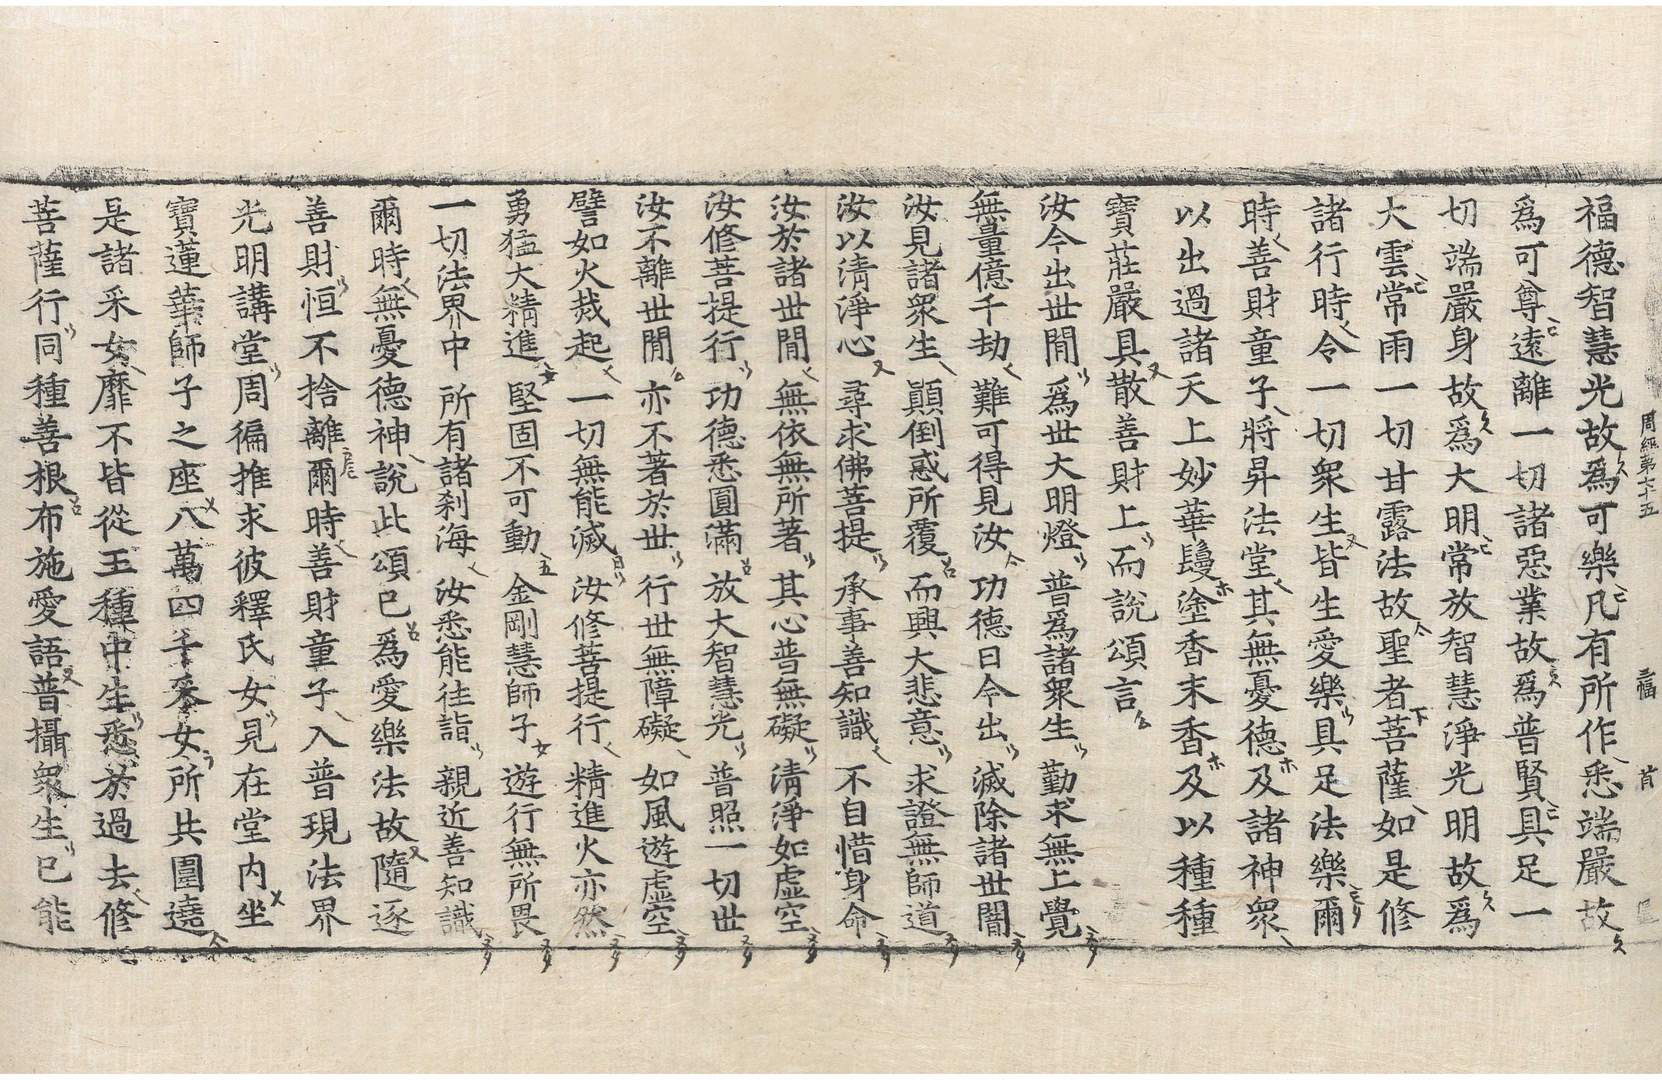 福德智慧光故爲可樂凡有所作悉端嚴故
爲可尊遠離一切諸惡業故爲普賢具足一
切端嚴身故爲大明常放智慧淨光明故爲
大雲常雨一切甘露法故聖者菩薩如是修
諸行時令一切衆生皆生愛樂具足法樂爾
時善財童子將昇法堂其無憂德及諸神衆
以出過諸天上妙華鬘塗香末香及以種種
寶莊嚴具散善財上而說頌言
汝今出世閒 爲世大明燈 普爲諸衆生 勤求無上覺
無量億千劫 難可得見汝 功德日今出 滅除諸世闇
汝見諸衆生 顚倒惑所覆 而興大悲意 求證無師道
汝以淸淨心 尋求佛菩提 承事善知識 不自惜身命
汝於諸世閒 無依無所著 其心普無礙 淸淨如虛空
汝修菩提行 功德悉圓滿 放大智慧光 普照一切世
汝不離世閒 亦不著於世 行世無障礙 如風遊虛空
譬如火烖起 一切無能滅 汝修菩提行 精進火亦然
勇猛大精進 堅固不可動 金剛慧師子 遊行無所畏
一切法界中 所有諸刹海 汝悉能往詣 親近善知識
爾時無憂德神說此頌已爲愛樂法故隨逐
善財恒不捨離爾時善財童子入普現法界
光明講堂周徧推求彼釋氏女見在堂內坐
寶蓮華師子之座八萬四千采女所共圍遶
是諸采女靡不皆從王種中生悉於過去修
菩薩行同種善根布施愛語普攝衆生已能
周經第七十五